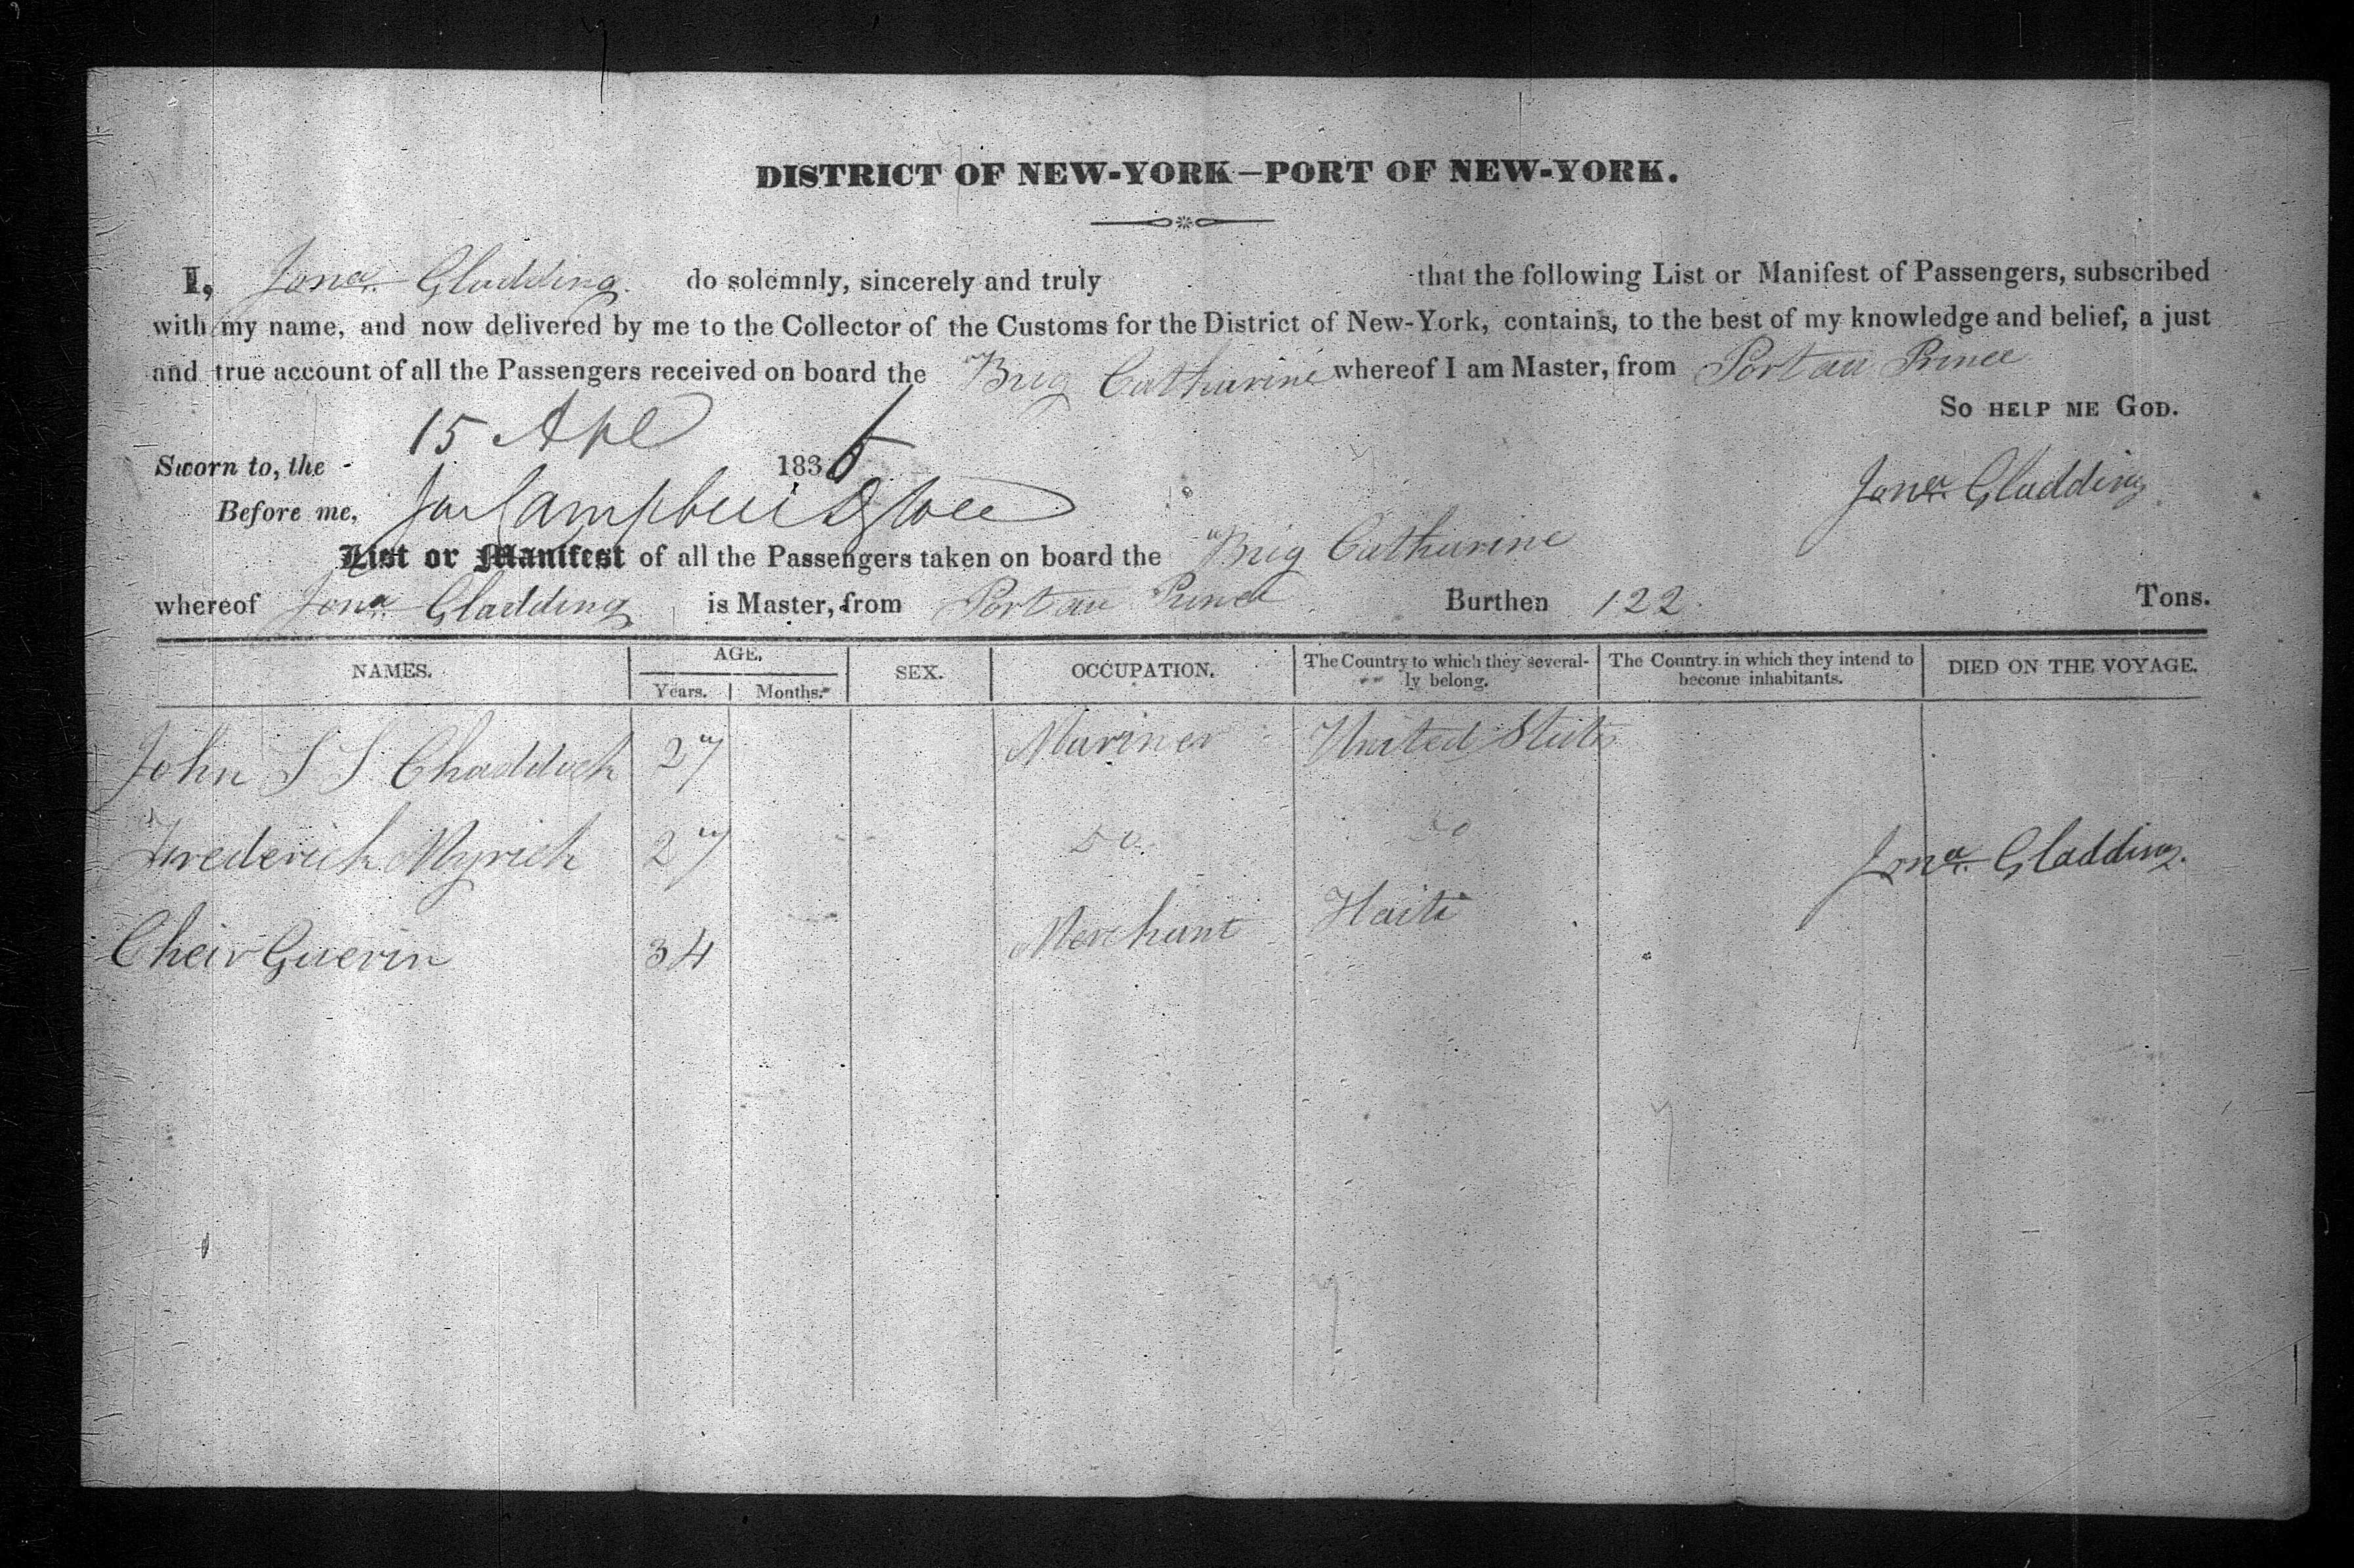 DISTRICT OF NEW-YORK—PORT OF NEW-YORK.
I, Jona. Gladding. do solemnly, sincerely and truly that the following List or Manifest of Passengers, subscribed
with my name, and now delivered by me to the Collector of the Customs for the District of New-York, contains, to the best of my knowledge and belief, a just
and true account of all the Passengers received on board the Brig Catharine whereof I am Master, from Port au Prince
So HELP ME GOD.
Sworn to, the 15 Apl 183
Jona. Gladding
Before me, Campbell
List or Manifest of all the Passengers taken on board the Brig Catharine
whereof Jona. Gladding is Master, from Port au Prince Burthen 122 Tons.
NAMES. AGE. SEX. OCCUPATION. The Country to which they several-ly belong. The Country in which they intend to become inhabitants. DIED ON THE VOYAGE.
Years. Months.
John S S Chaddock 27 Mariner United States
Frederick Myrick 27 Do Do
Jona. Gladding.
Cheir Guerin 34 Merchant Haiti